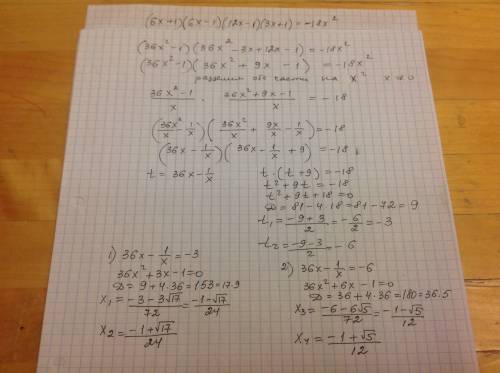 (6x+1)(6x-1)(12x-1)(3x+1)=-18x²
(36x²-1)(36x²-3x+12x-1)=-18x²
(36x²-1)(36x²+9x-1)=-18x²
разделим обе части на x² x≠0
(36x²-1)/x · (36x²+9x-1)/x = -18
(36x²/x - 1/x)(36x²/x + 9x/x - 1/x)=-18
(36x - 1/x)(36x - 1/x + 9)=-18
t = 36x - 1/x
t·(t+9)=-18
t²+9t=-18
t²+9t+18=0
D=81-4·18=81-72=9
t₁=(-9+3)/2=-6/2=-3
t₂=(-9-3)/2=-6
1) 36x-1/x=-3
36x²+3x-1=0
D=9+4·36=153=17·9
x₁=(-3-3√17)/72=(-1-√17)/24
x₂=(-1+√17)/24
2) 36x-1/x=-6
36x²+6x-1=0
D=36+4·36=180=36·5
x₃=(-6-6√5)/72=(-1-√5)/12
x₄=(-1+√5)/12